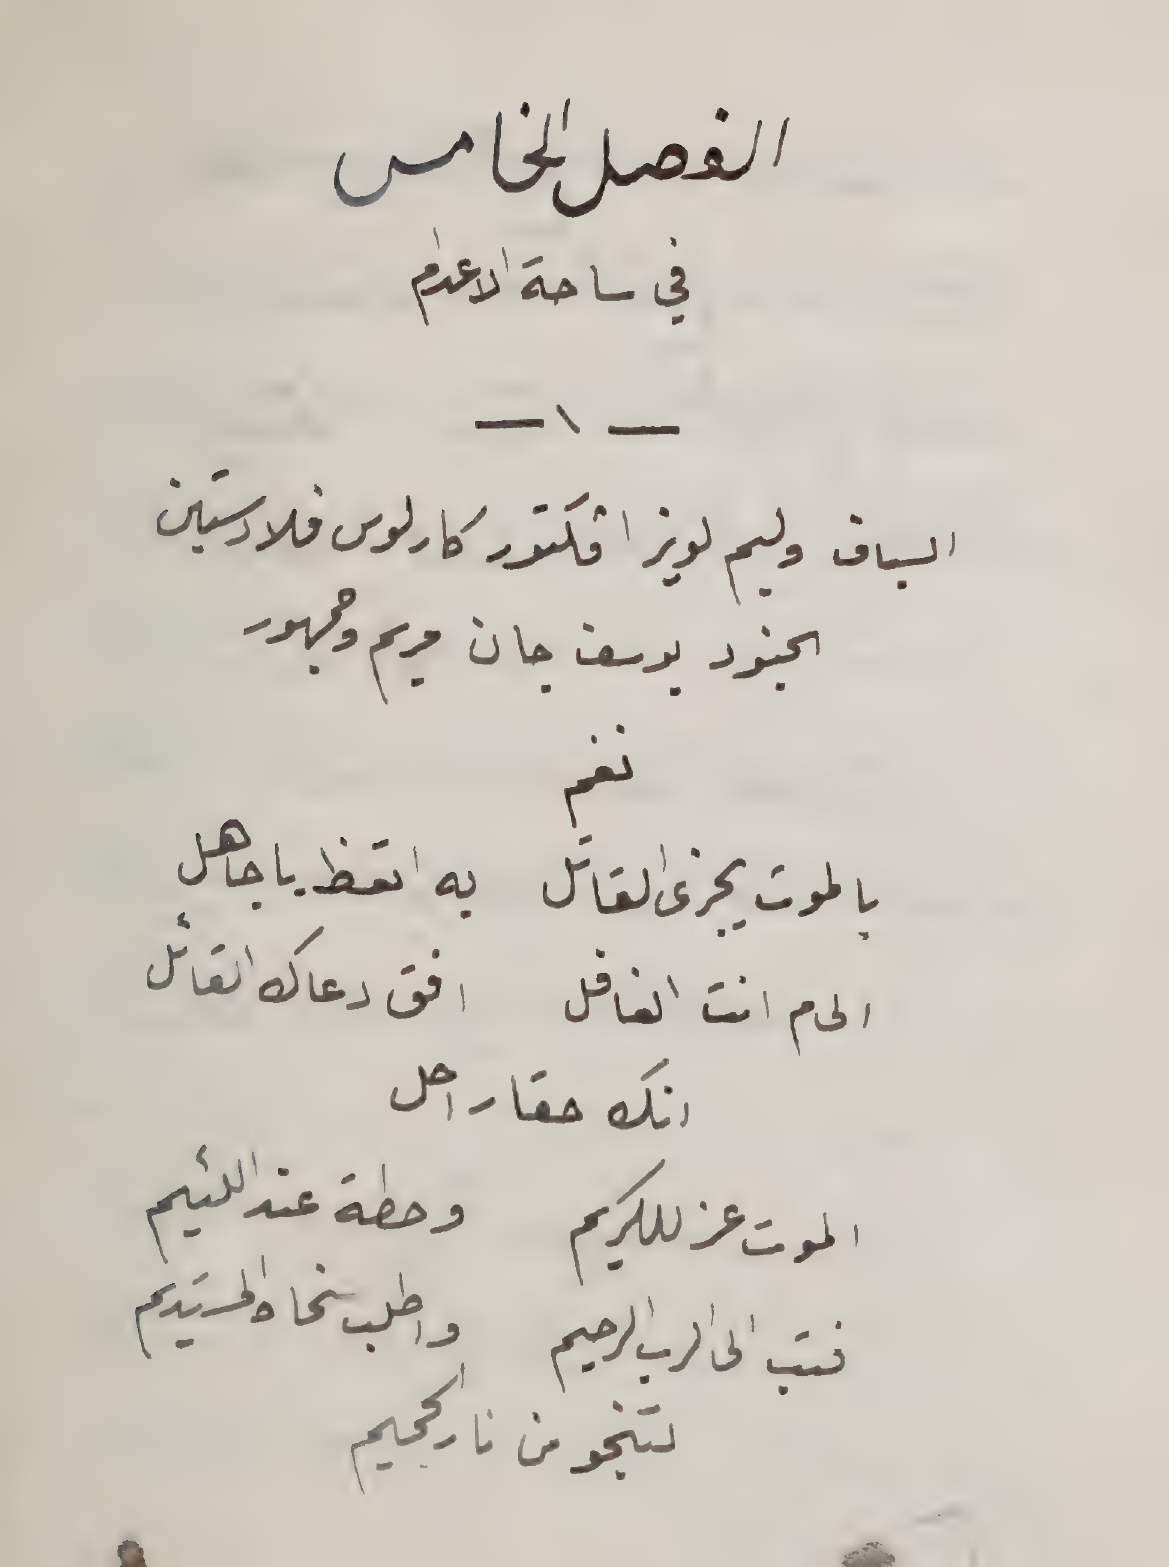 الفصل الخامس
في ساحة الاعدام
— ١ —
السياف وليم لويزا فكتور كارلوس فلادستين
الجنود يوسف جان مريم وجمهور
نغم
بالموت يجزى القاتل به اتعظ يا جاهل
الىم انت الغافل افق دعاك القائل
انك حقا راحل
الموت عز للكريم وحطة عند اللئيم
فتب الى الرب الرحيم واطلب نجاة
لتنجو من نار الجحيم